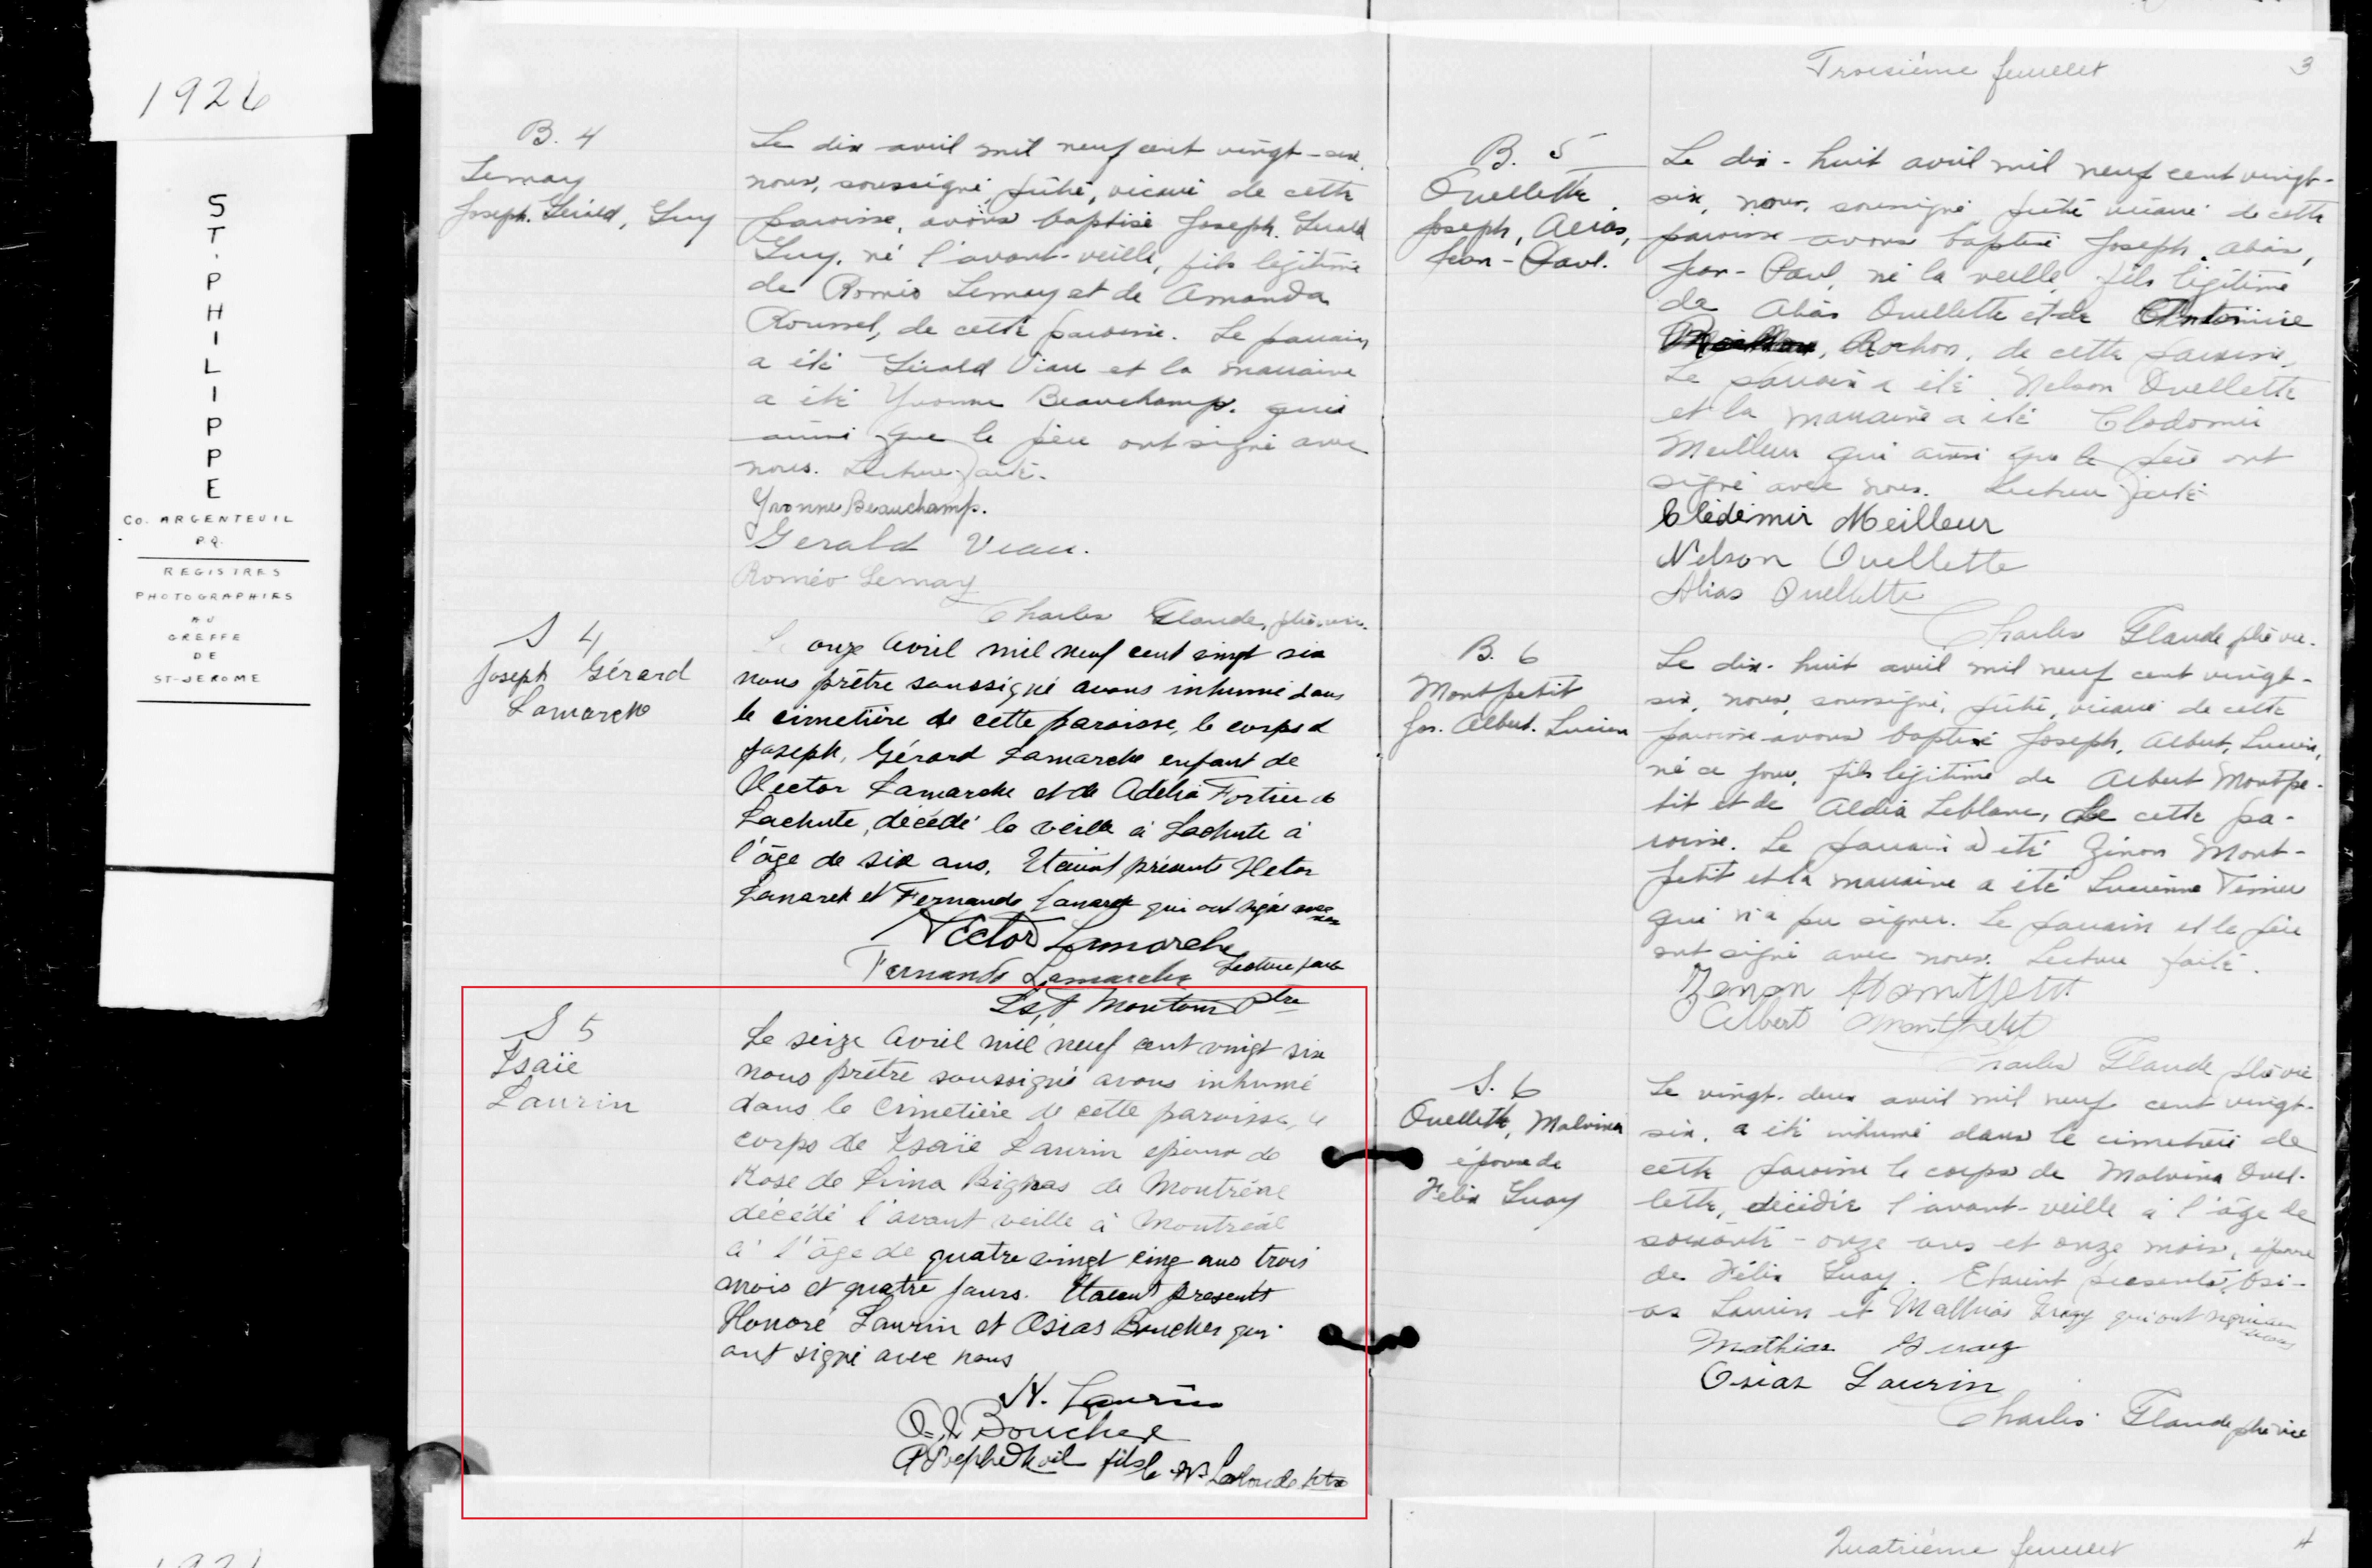 1926
ST. PHILIPPE
CO. ARGENTEUIL
P.Q.
REGISTRES
PHOTOGRAPHIES
AU
GREFFE
DE
ST-JEROME
B. 4
Lemay
Joseph. Gérald, Guy
Le dix avril mil neuf cent vingt-six
nous, soussigné, prêtre, vicaire de cette
paroisse, avons baptisé Joseph. Gérald
Guy, né l'avant-veille, fils légitime
de Roméo Lemay et de Amanda
Roussel, de cette paroisse. Le parrain
a été Gérald Viau et la marraine
a été Yvonne Beauchamp. qui
ainsi que le père ont signé avec
nous. Lecture faite.
Yvonne Beauchamp.
Gerald Viau.
Roméo Lemay
Charles Glaude, ptre vic.
S 4
Joseph Gérard
Lamarche
Le onze Avril mil neuf cent vingt six
nous prêtre soussigné avons inhumé dans
le cimetière de cette paroisse, le corps d
Joseph, Gérard Lamarche enfant de
Hector Lamarche et de Adelia Fortier de
Lachute, décédé la veille à Lachute à
l'âge de six ans. Etaient présents Hector
Lamarch et Fernande Lamarch qui ont signé avec nous
Hector Lamarche
Fernande Lamarche Lecture faite
Ls, A Montour Ptre
S 5
Isaïe
Laurin
Le seize Avril mil neuf cent vingt six
nous prêtre soussigné avons inhumé
dans le Cimetière de cette paroisse, le
corps de Isaïe Laurin epoux de
Rose de Lima Bigras de Montréal
décédé l'avant veille à Montréal
à l'âge de quatre vingt cinq ans trois
mois et quatre jours. Etaient présents
Honoré Laurin et Osias Boucher qui
ont signé avec nous
H. Laurin
O. J. Boucher
fils Lalonde ptre
Troisième feuillet 3
B. 5
Ouellette
Joseph, Alias,
Jean-Paul.
Le dix-huit avril mil neuf cent vingt-
six, nous, soussigné prêtre vicaire de cette
paroisse avons baptisé Joseph, Alias,
Jean-Paul, né la veille, fils légitime
de Alias Ouellette et de Antonine
Rochon, de cette paroisse.
Le parrain a été Nelson Ouellette
et la marraine a été Clodomir
Meilleur qui ainsi que le père ont
signé avec nous. Lecture faite
Clédimir Meilleur
Nelson Ouellette
Alias Ouellette
Charles Glaude ptre vic.
B. 6
Montpetit
Jos. Albert. Lucien
Le dix-huit avril mil neuf cent vingt-
six, nous, soussigné, prêtre, vicaire de cette
paroisse avons baptisé Joseph, Albert, Lucien,
né ce jour, fils légitime de Albert Montpe-
tit et de Aldia Leblanc, de cette pa-
roisse. Le parrain a été Zénon Mont-
petit et la marraine a été Lucienne Terrien
qui n'a pu signer. Le parrain et le père
ont signé avec nous. Lecture faite.
Zenon Montpetit
Albert Montpetit
Charles Glaude ptre vic
S. 6
Ouellette, Malvina
épouse de
Félix Guay
Le vingt-deux avril mil neuf cent vingt-
six, a été inhumé dans le cimetière de
cette paroisse le corps de Malvina Ouel-
lette, décédée l'avant-veille à l'âge de
soixante-onze ans et onze mois, épouse
de Félix Guay. Etaient présents, Osi-
as Laurin et Mathias Guay qui ont signé avec nous
Mathias Guay
Osias Laurin
Charles Glaude ptre vic
Quatrième feuillet 4